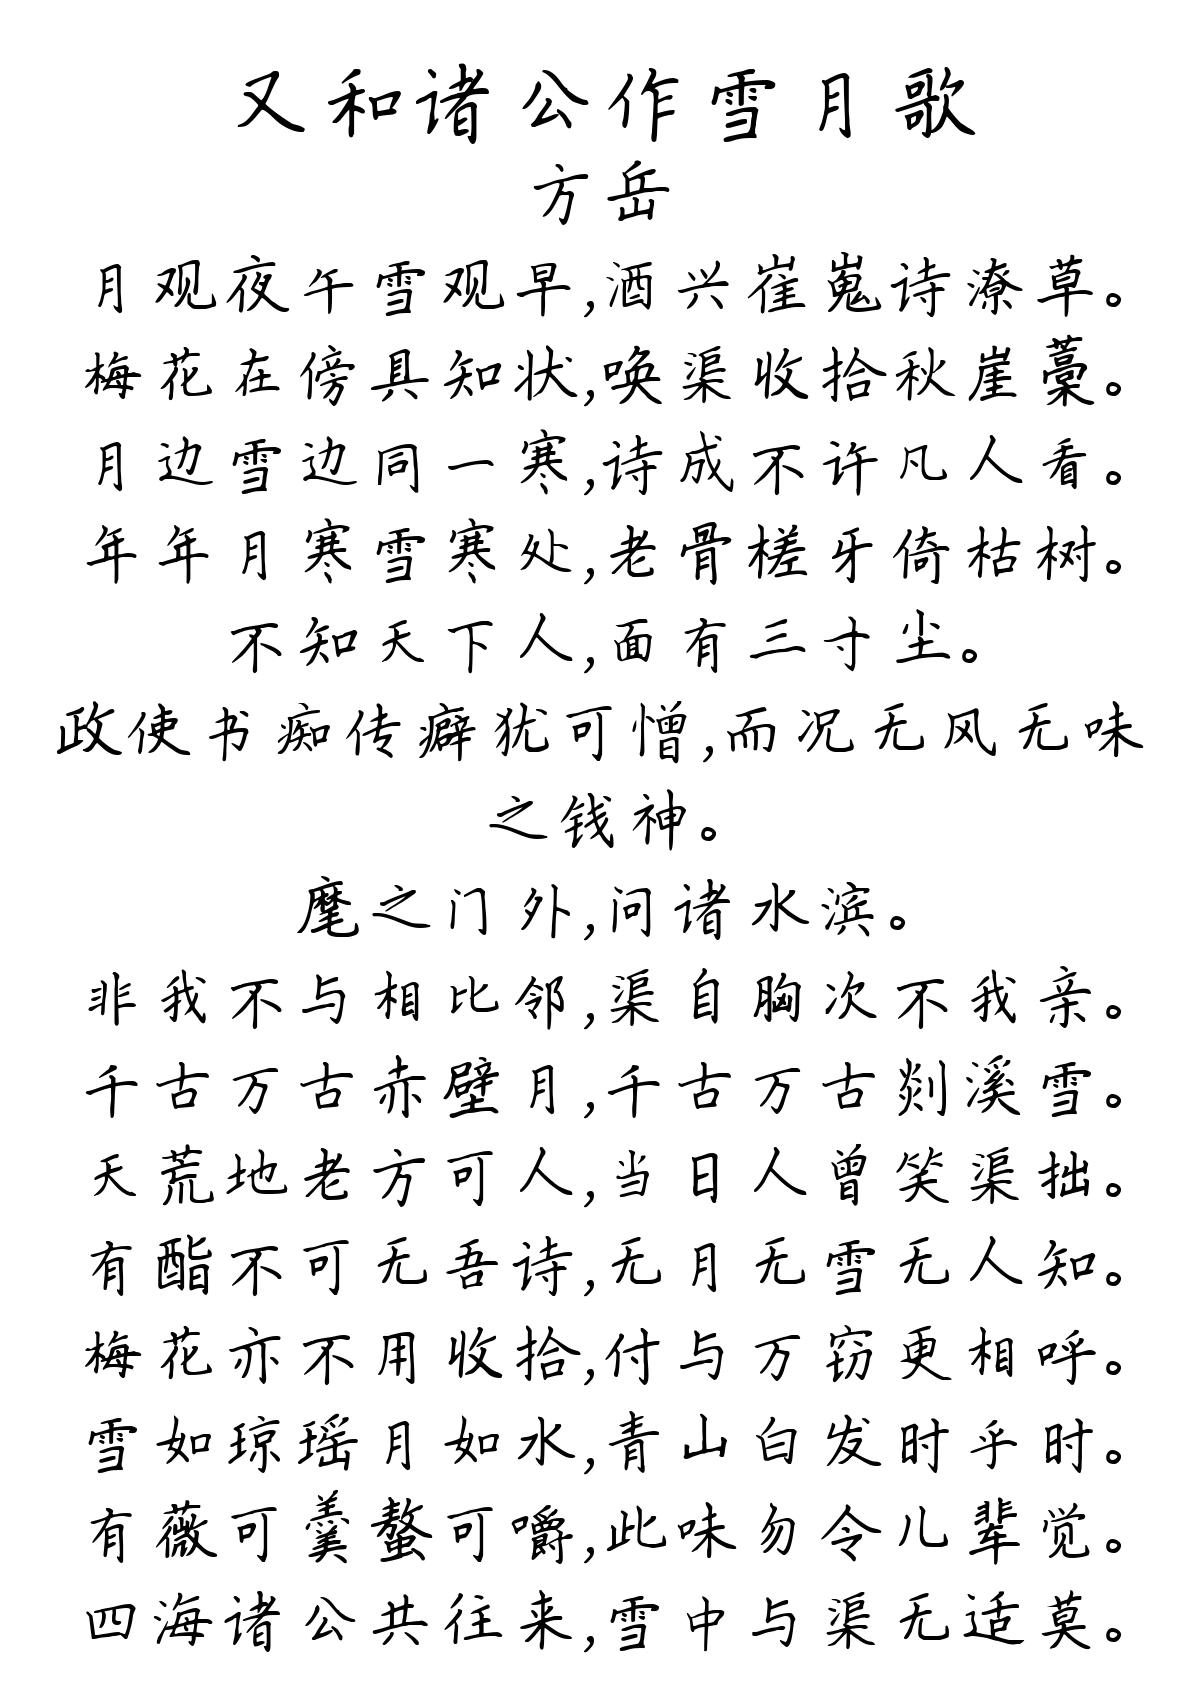 又和诸公作雪月歌
方岳
月观夜午雪观早,酒兴崔嵬诗潦草。
梅花在傍具知状,唤渠收拾秋崖藁。
月边雪边同一寒,诗成不许凡人看。
年年月寒雪寒处,老骨槎牙倚枯树。
不知天下人,面有三寸尘。
政使书痴传癖犹可憎,而况无风无味
之钱神。
麾之门外,问诸水滨。
非我不与相比邻,渠自胸次不我亲。
千古万古赤壁月,千古万古剡溪雪。
天荒地老方可人,当日人曾笑渠拙。
有酯不可无吾诗,无月无雪无人知。
梅花亦不用收拾,付与万窍更相呼。
雪如琼瑶月如水,青山白发时乎时。
有薇可羹螯可嚼,此味勿令儿辈觉。
四海诸公共往来,雪中与渠无适莫。